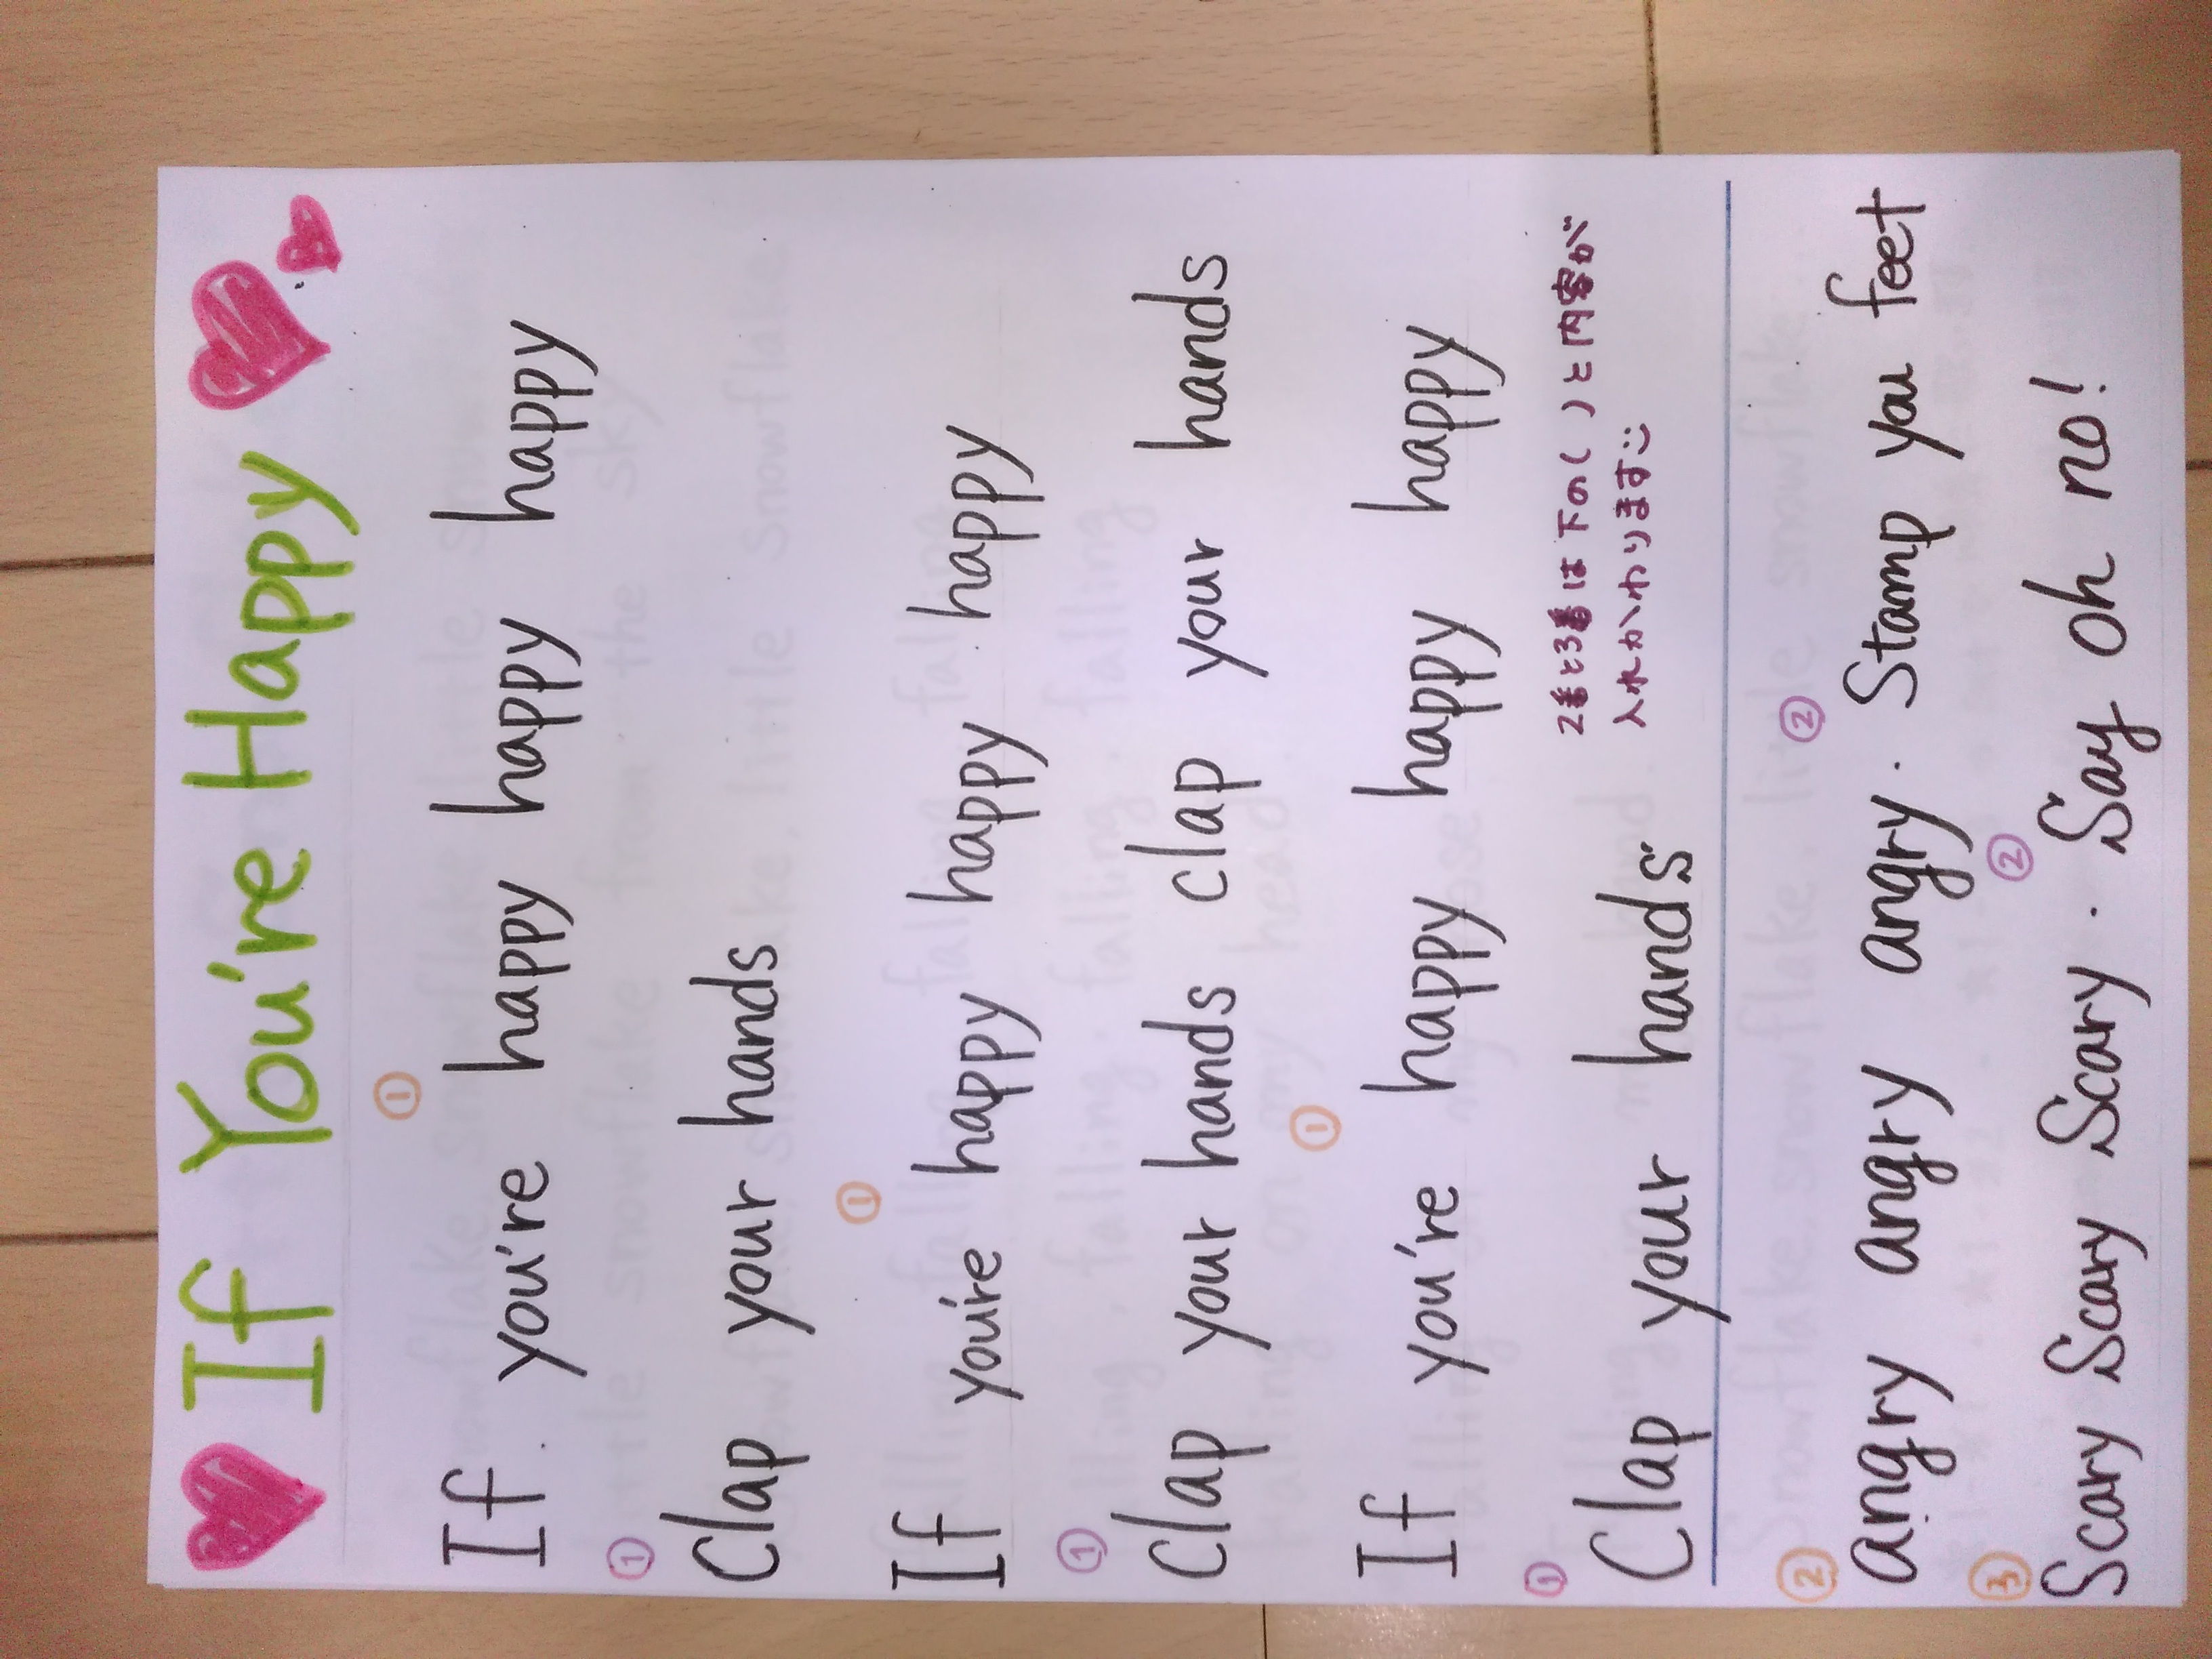 If You're Happy
①
If you're happy happy happy happy
①
Clap your hands
①
If you're happy happy happy
①
Clap your hands clap your hands
①
If you're happy happy happy
①
Clap your hands
2番と3番は下の( )と内容が
入れかわります
② ②
angry angry angry. Stamp you feet
③ ②
Scary Scary Scary. Say oh no!